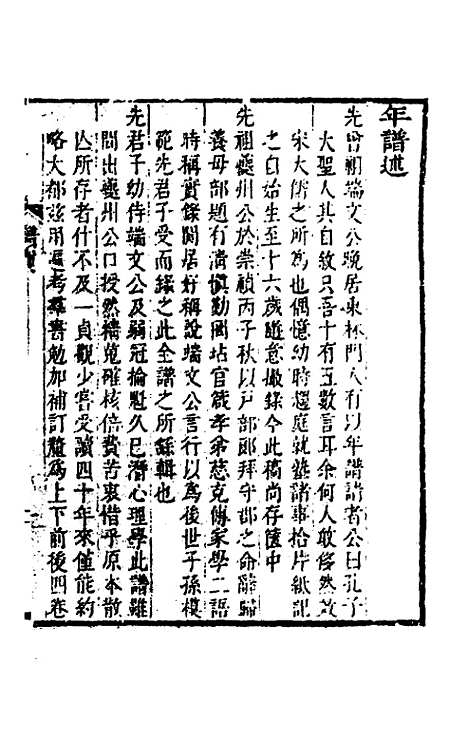 年譜述
先曾祖端文公晚居東林門人有以年譜請者公曰孔子
大聖人其自敘只吾十有五數言耳余何人敢侈然效
宋大儒之所為也偶憶幼時趨庭就塾諸事拾片紙記
之自始生至十六歲隨意撤錄今此稿尚存篋中
先祖夔州公於崇禎丙子秋以戶部郎拜守郡之命辭歸
養母部題有清慎勤國站官箴孝弟慈克傳家學二語
時稱實錄閒居好稱說端文公言行以為後世子孫模
範先君子受而錄之此全譜之所繇輯也
先君子幼侍端文公及弱冠掄魁久已潛心理學此譜雖
間出夔州公口授然繙蒐確核倍費苦衷惜乎原本散
亾所存者什不及一貞觀少嘗受讀四十年來僅能約
略大都茲用徧考羣書勉加補訂釐為上下前後四卷